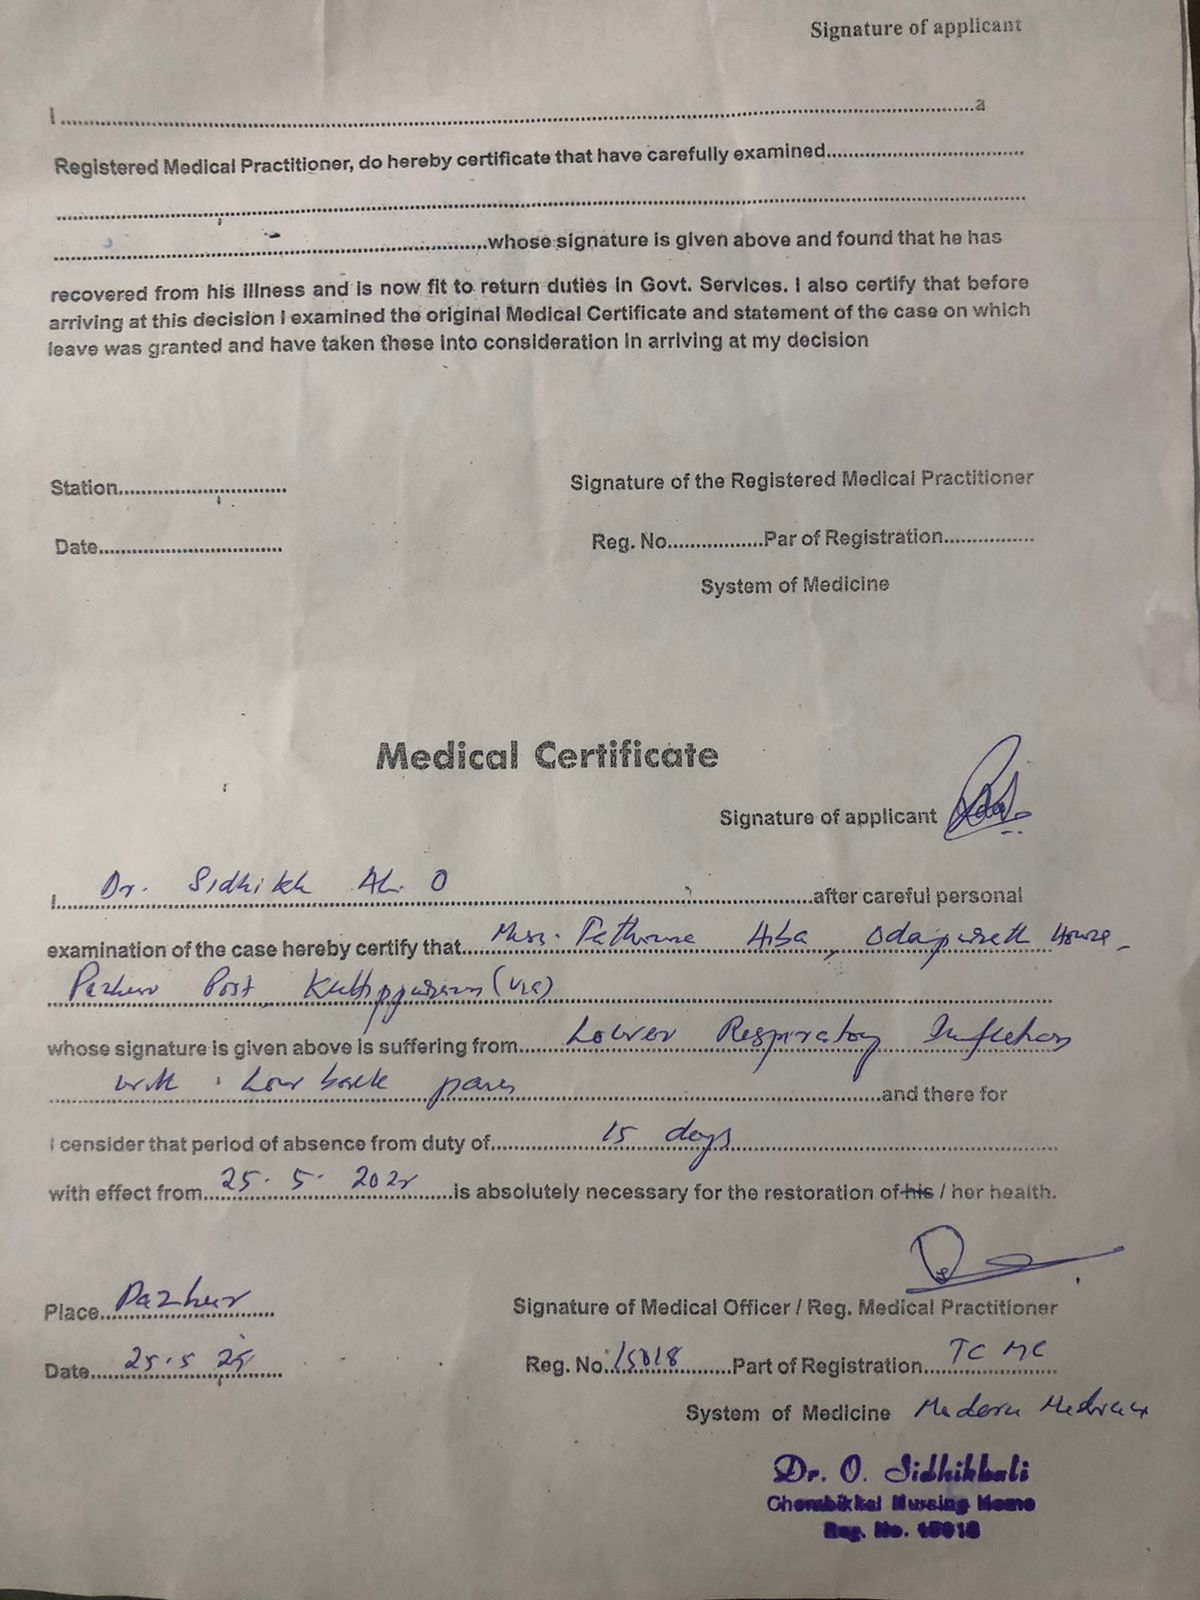 Signature of applicant
I.....a
Registered Medical Practitioner, do hereby certificate that have carefully examined.....
.....whose signature is given above and found that he has
recovered from his illness and is now fit to return duties in Govt. Services. I also certify that before
arriving at this decision I examined the original Medical Certificate and statement of the case on which
leave was granted and have taken these into consideration in arriving at my decision
Station.....
Signature of the Registered Medical Practitioner
Date.....
Reg. No.....Par of Registration.....
System of Medicine
Medical Certificate
Signature of applicant
I Dr. Sidhikh Ali. O .....after careful personal
examination of the case hereby certify that Hiba, House,
Pazhur Post, Kuttippuram (via)
whose signature is given above is suffering from Lower Respiratory Infection
with Low back pain .....and there for
I censider that period of absence from duty of 15 days
with effect from 25.5.2025 is absolutely necessary for the restoration of his / her health.
Place Pazhur
Signature of Medical Officer / Reg. Medical Practitioner
Date 25.5 25
Reg. No. 15018 Part of Registration TC MC
System of Medicine Modern Medicine
Dr. O. Sidhikhali
Chembikkal Nursing Home
Reg. No. 15018